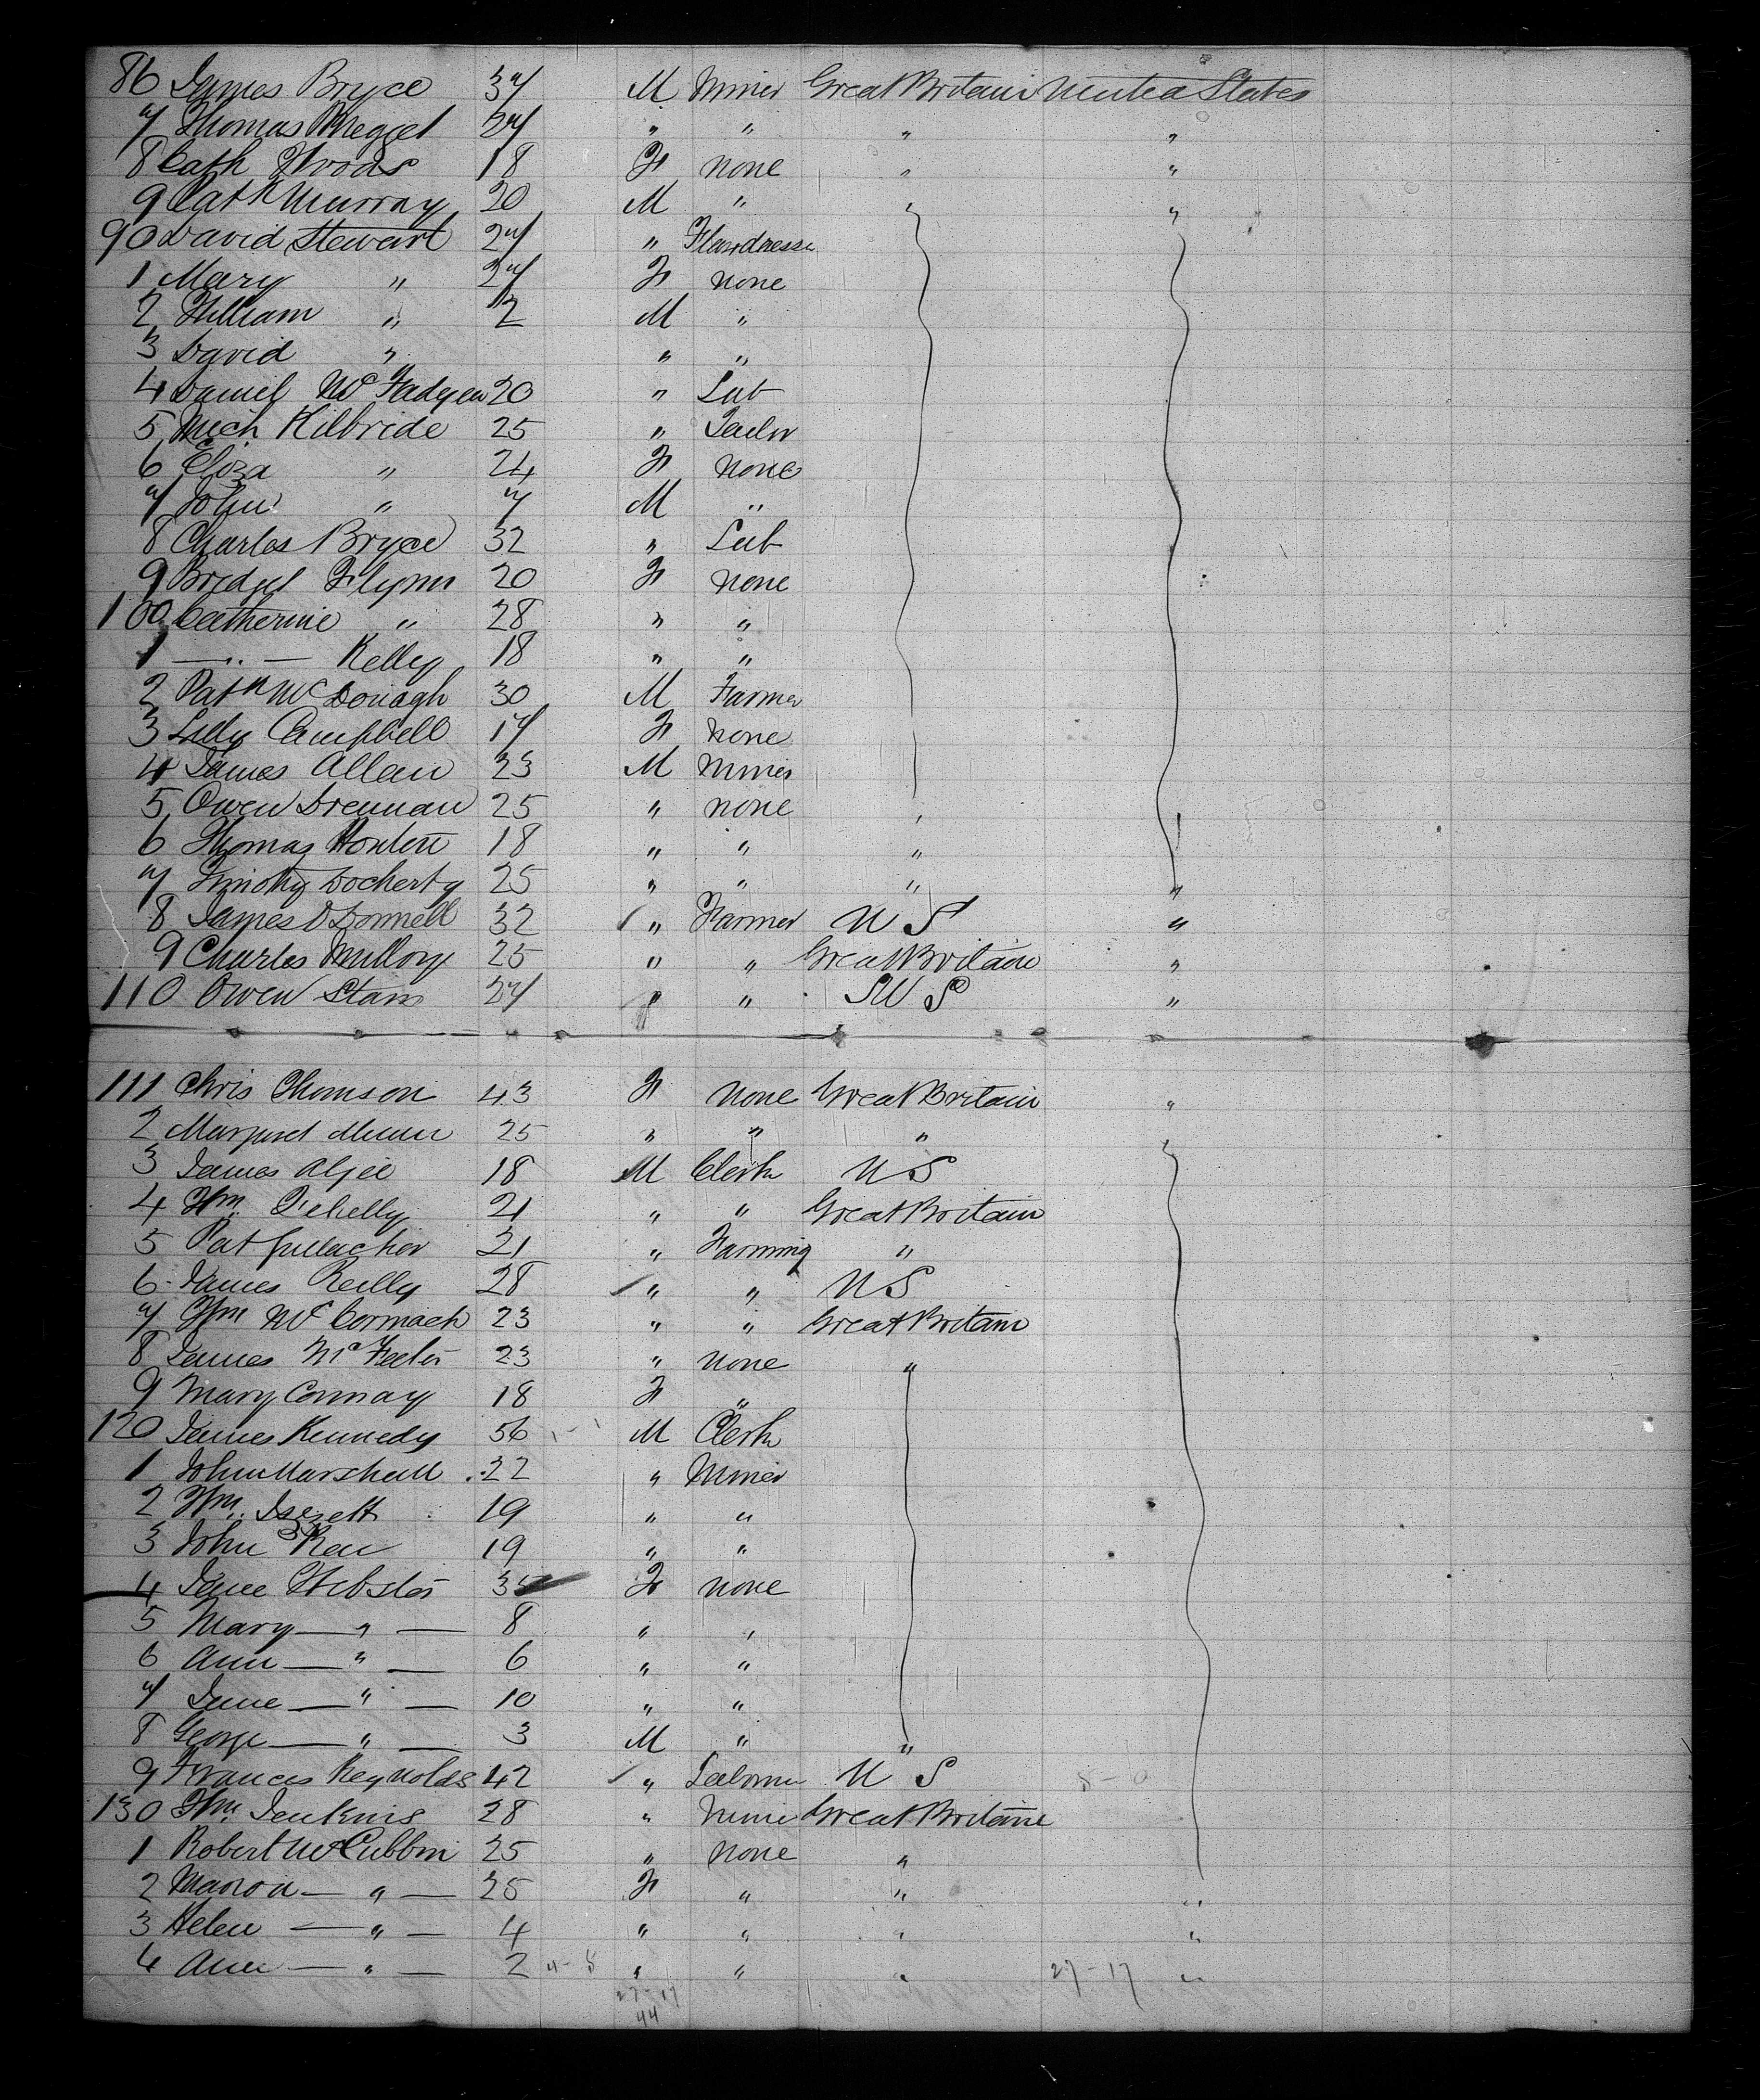 86 James Bryce 37 M Miner Great Britain United States
7 Thomas Megget 27 " " " "
8 Cath Woods 18 F none " "
9 Cath Murray 20 M " " "
90 David Stewart 27 " Flaxdresser
1 Mary " 27 F none
2 William " 2 M "
3 David " " "
4 Daniel McFadyen 20 " Lab
5 Mich Kilbride 25 " Tailor
6 Eliza " 24 F none
7 John " 7 M "
8 Charles Bryce 32 " Lab
9 Bridget Flynn 20 F none
100 Catherine " 28 " "
1 —"— Kelly 18 " "
2 Patk McDonagh 30 M Farmer
3 Lilly Campbell 17 F none
4 James Allan 23 M Miner
5 Owen Brennan 25 " none "
6 Thomas 18 " " "
7 Timothy Docherty 25 " " " "
8 James O Donnell 32 " Farmer U S "
9 Charles Mulloy 25 " " Great Britain "
110 Owen 27 " " U S "
111 Chris Thomson 43 F none Great Britain "
2 Margaret 25 " " " "
3 James Algie 18 M Clerk U S
4 Wm. 21 " " Great Britain
5 Pat Gallacher 21 " Farming "
6 James Reilly 28 " " U S
7 Wm McCormack 23 " " Great Britain
8 James McFeeter 23 " none "
9 Mary Conway 18 F "
120 James Kennedy 56 M Clerk
1 John Marshall 22 " Miner
2 Wm. 19 " "
3 John Rae 19 " "
4 Jane Webster 35 F none
5 Mary — " — 8 " "
6 Ann — " — 6 " "
7 Jane — " — 10 " "
8 George — " — 3 M " "
9 Frances Reynolds 42 " U S
130 Wm. Jenkins 28 " Mine Great Britain
1 Robert McCubbin 25 " none "
2 Marion — " — 25 F " " "
3 Helen — " — 4 " " " "
4 Ann — " — 2 " " " 27-17 "
27-17
44